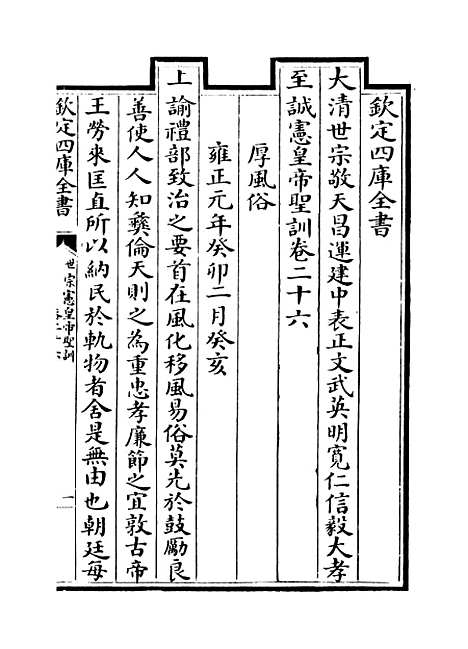 欽定四庫全書
大清世宗敬天昌運建中表正文武英明寬仁信毅大孝
至誠憲皇帝聖訓卷二十六
厚風俗
雍正元年癸卯二月癸亥
上諭禮部致治之要首在風化移風易俗莫先於鼓勵良
善使人人知彝倫天則之為重忠孝廉節之宜敦古帝
王勞來匡直所以納民於軌物者舍是無由也朝廷每
欽定四庫全書
世宗憲皇帝聖訓
卷二十六
一